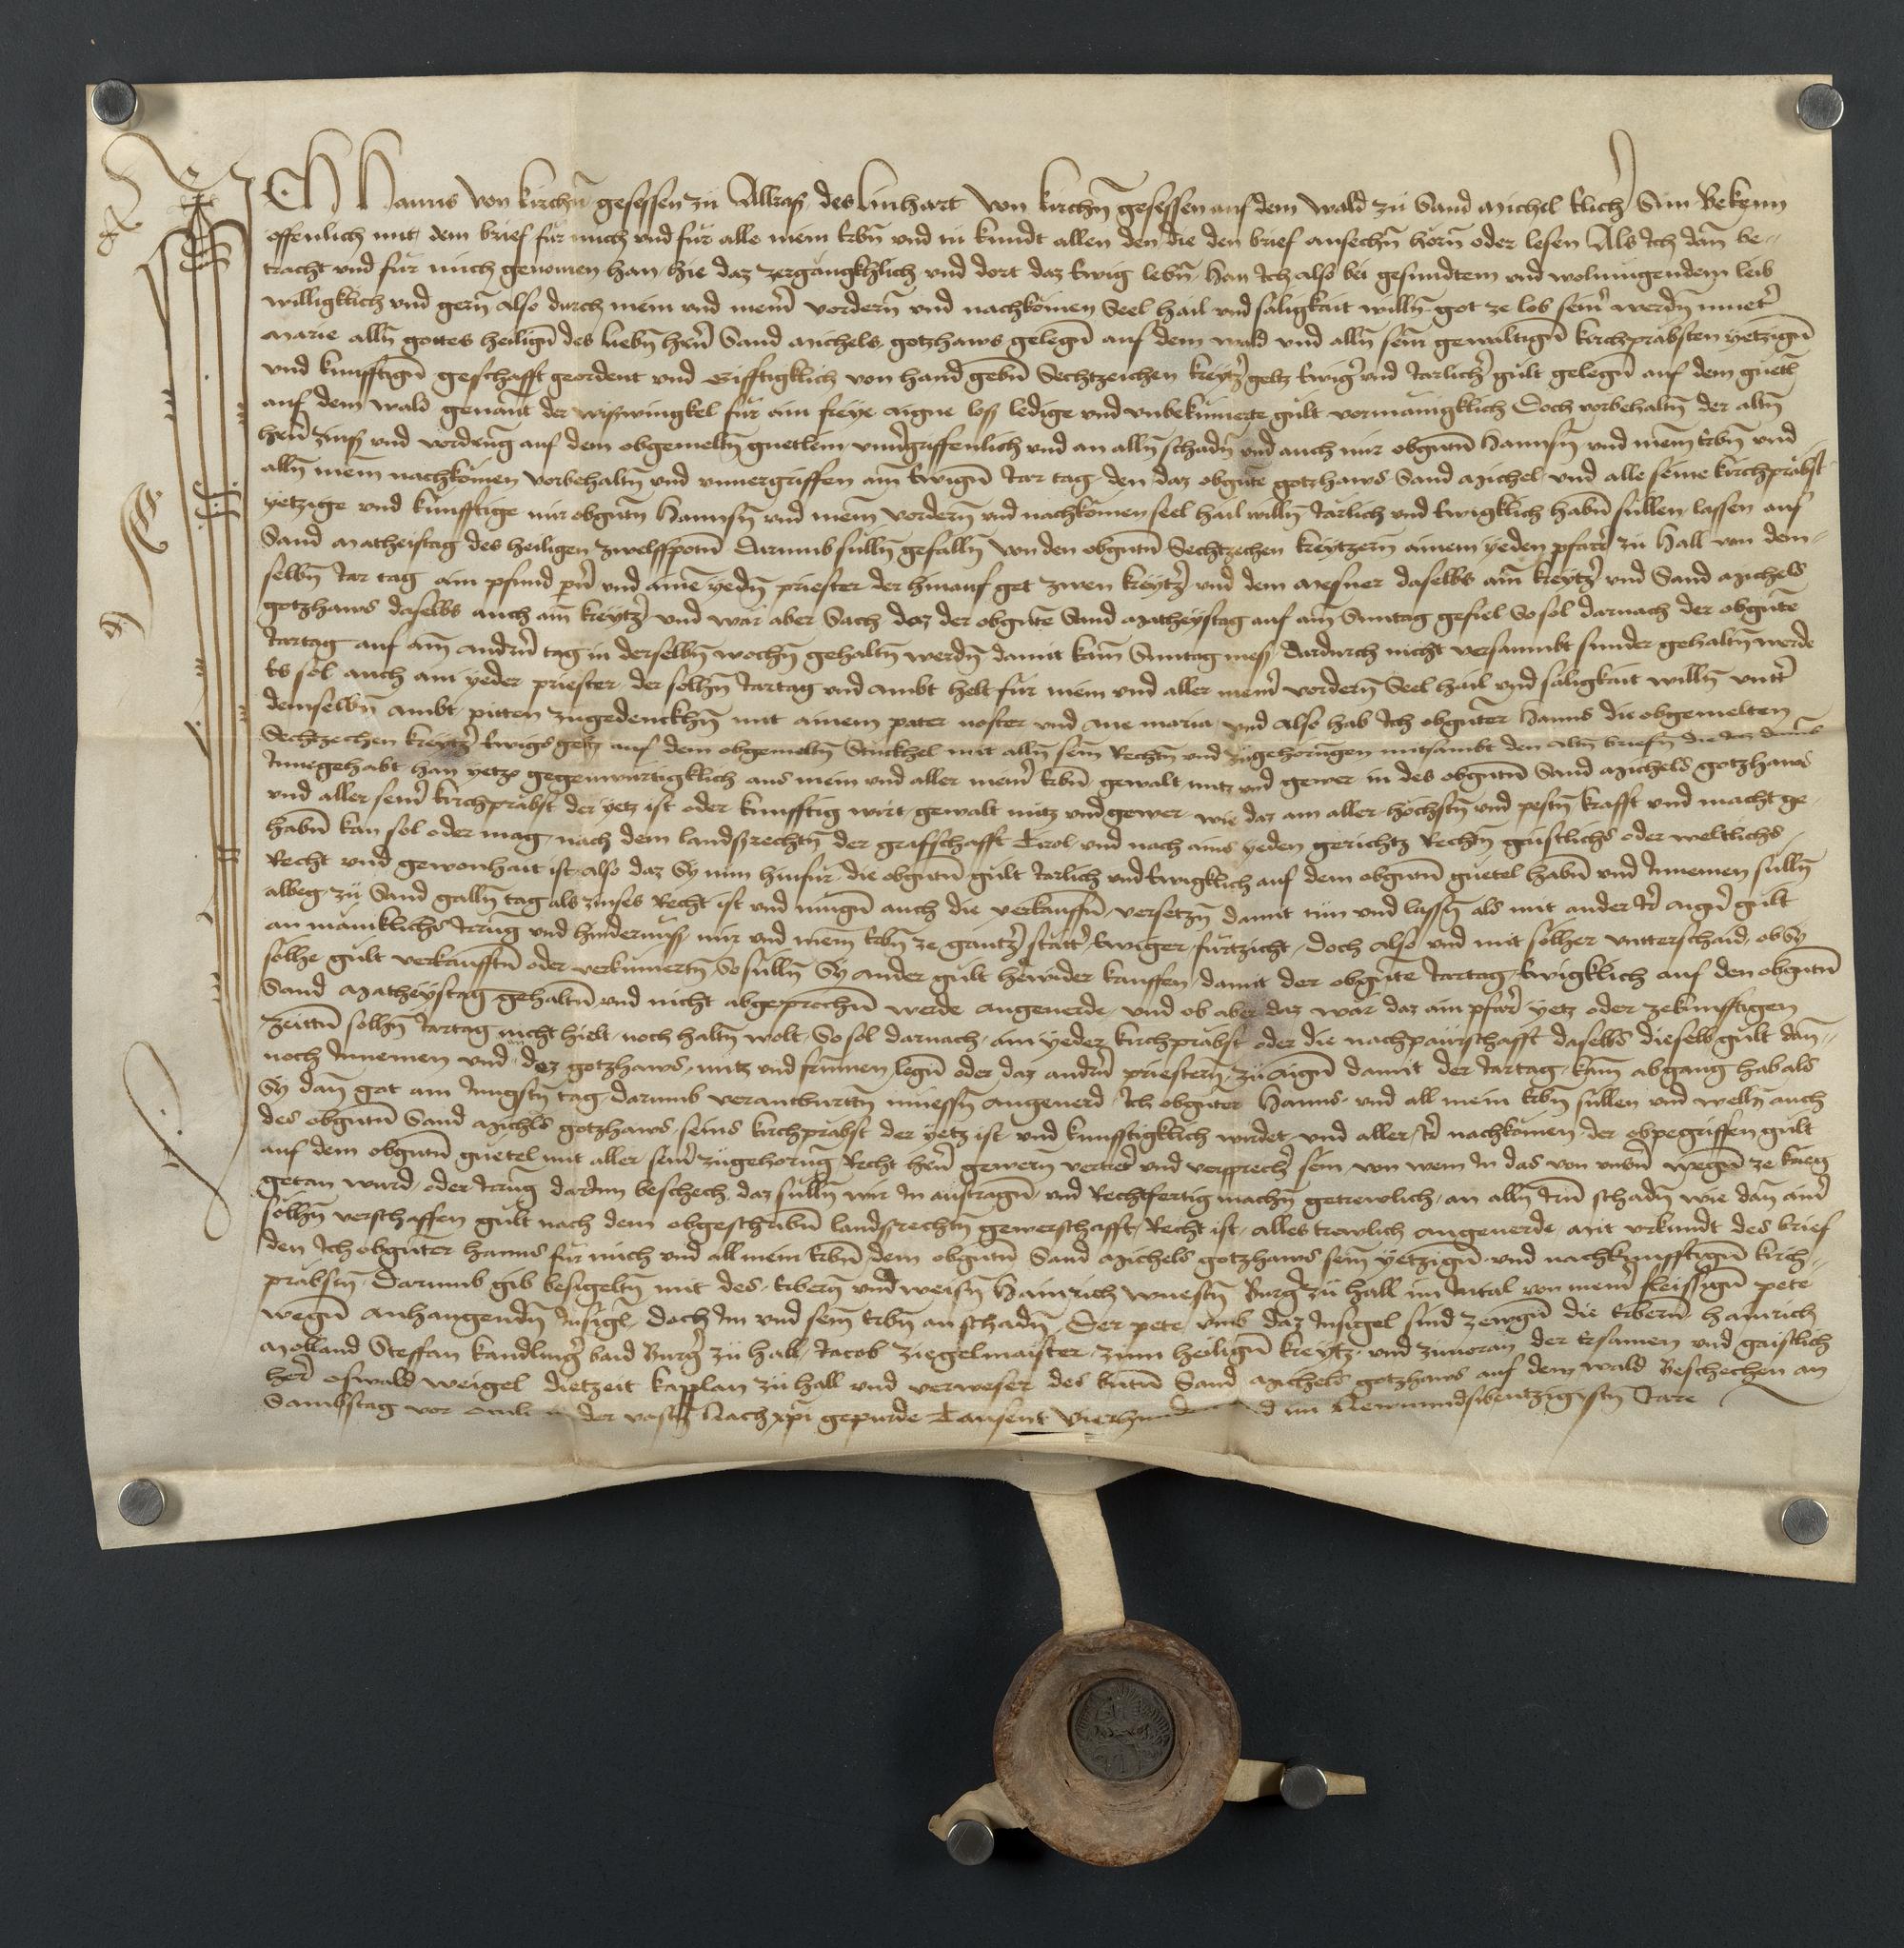 ICh Hanns von kirchn̄ gesessen zü Allras des linhart von kirchn̄ gesessen auf dem wald zü Sand Michel Elicher Sün Bekenn
offenlich mit dem brief für mich vnd für alle mein Erbn̄ vnd tü kundt allen den die den brief ansechn̄ hörn̄ oder lesen Als Ich dan̄ be-
tracht vnd für mich genomen han hie daz zergängkhlich vnd dort daz Ewig lebn̄ han Ich also bei gesundtem vnd wolmügendem leib
willigklich vnd gern̄ also durch mein vnd mein̄ vordern̄ vnd nachkömen Seel hail vnd säligkait willn̄ got ze lob sein̄ werdn̄ mueter
Marie alln̄ gottes heilign̄ des liebn̄ hern̄ Sand Michels gotzhaws gelegn̄ auf dem wald vnd alln̄ sein̄ gewaltign̄ kirchpräbsten yetzign̄
vnd kunfftign̄ geschafft geordent vnd gifftigklich von hand gebn̄ Sechtzechen kreytzer geltz Ewiger vnd Järlicher gült gelegn̄ auf dem guetl
auf dem wald genant der wiswingkel für ain freye aigne loss ledige vnd vnbekümerte gült vormänigklich Doch vorbehaltn̄ der altn̄
hern̄ zinss vnd vordrung auf dem obgemeltn̄ guetlein vnuergriffenlich vnd an alln̄ schadn̄ vnd auch mir obgntn̄ Hannsn̄ vnd mein̄ Erbn̄ vnd
alln̄ mein̄ nachkömen vorbehaltn̄ vnd vnuergriffen ain̄ Ewign̄ Jar tag den daz obgnte gotzhaws Sand Michel vnd alle seine kirchpräbst
yetzige vnd künfftige mir obgntn̄ Hannsn̄ vnd mein̄ vordern̄ vnd nachkömen seel hail willn̄ Järlich vnd Ewigklich habn̄ süllen lassen auf
Sand Matheistag des heiligen zwelffpotn̄ Darumb sülln̄ gefalln̄ von den obgntn̄ Sechtzechen kreytzern̄ ainem yeden pfarrer zü Hall von dem-
selbn̄ Jar tag ain pfund pern̄ vnd aine yedn̄ priester der hinauf get zwen kreytzer vnd dem Mesner daselbs ain̄ kreytzer vnd Sand Michels
gotzhaws daselbs auch ain̄ kreytzer vnd wär aber Sach daz der obgnte Sand Matheystag auf ain̄ Suntag gefiel So sol darnach der obgnte
Jartag auf ain̄ andern̄ tag in derselbn̄ wochn̄ gehaltn̄ werdn̄ damit kain̄ Suntag mess dardurch nicht versaumbt sunder gehaltn̄ werde
Es sol auch ain yeder priester der solhn̄ Jartag vnd ambt helt für mein vnd aller meiner vordern̄ Seel hail vnd säligkait willn̄ vnter
demselbn̄ ambt pitten zugedenckhn̄ mit ainem pater noster vnd Aue maria vnd also hab Ich obgnter Hanns die obgemelten
Sechtzechen kreytzer Ewigs geltz auf dem obgemeltn̄ Stuckhel mit alln̄ sein̄ Rechtn̄ vnd zugehorungen mitsambt den altn̄ briefn̄
Innegehabt han yetzo gegenwürtigklich aus mein vnd aller meiner Erbn̄ gewalt nutz vnd gewer in des obgntn̄ Sand Michels gotzhaws
vnd aller seiner kirchpräbst der yetz ist oder kunfftig wirt gewalt nütz vnd gewer wie daz am aller höchstn̄ vnd pestn̄ krafft vnd macht ge-
habn̄ kan sol oder mag nach dem landsrechtn̄ der grafschafft Tirol vnd nach ains yeden gerichtz Rechtn̄ gaistlichs oder weltlichs
Recht vnd gewonhait ist also daz Sy nün hinfür die obgntn̄ gült Järlich vnd Ewigklich auf dem obgntn̄ guetel habn̄ vnd Innemen sülln̄
albeg zü Sand galln̄ tag als zinses Recht ist vnd mügn̄ auch die verkauffn̄ versetzn̄ damit tün vnd lassn̄ als mit ander Ir̄ aign̄ gült
an mäniklichs Irrung vnd hindernüss mir vnd mein̄ Erbn̄ ze gantzer stätter Ewiger fürtzicht doch also vnd mit solher vnterschaid ob Sy
solhe gült verkaufftn̄ oder verkümertn̄ So sülln̄ Sy ander gült herwider kauffen damit der obgnte Jartag Ewigklich auf den obgntn̄
Sand Matheystag gehaltn̄ vnd nicht abgeprochn̄ werde angeuerde vnd ob aber daz wär daz ain pfarrer yetz oder zekunfftigen
zeittn̄ solhn̄ Jartag nicht hielt noch haltn̄ wolt So sol darnach ain yeder kirchpräbst oder die nachpaurschafft daselbs dieselb gült dan̄-
noch Innemen vnd an daz gotzhaws nütz vnd frümen legn̄ oder daz andern̄ priestern̄ zü aign̄ damit der Jartag kain̄ abgang hab als
Sy dan̄ got am Jungstn̄ tag darumb verantburttn̄ müessn̄ angeuerd Ich obgnter Hanns vnd all mein Erbn̄ süllen vnd welln̄ auch
des obgntn̄ Sand Michls gotzhaws seins kirchpräbst der yetz ist vnd kunfftigklich wirdet vnd aller Ir̄ nachkömen der obpegriffen gült
auf dem obgntn̄ guetel mit aller seiner zugehorung Recht hern̄ gewern̄ vertreter vnd versprecher sein von wem In das von vnsern̄ wegn̄ ze krieg
getan wurd oder Irrung darInn beschech daz sülln̄ wir In austragn̄ vnd Rechtfertig machn̄ getrewlich an alln̄ Irn̄ schadn̄ wie dan̄ ainer
solhn̄ verschaffen gült nach dem obgeschribn̄ landsrechtn̄ gewerschafft Recht ist alles trewlich angeuerde Mit vrkundt des brief
den Ich obgnter hanns für mich vnd all mein Erbn̄ dem obgntn̄ Sand Michels gotzhaws sein̄ yetzign̄ vnd nachkunfftign̄ kirch-
präbstn̄ Darumb gib besigeltn̄ mit des Erbern̄ vnd weisn̄ Hainrich wuestn̄ Burger zü hall im Intal von meiner fleissign̄ pete
wegn̄ Anhangendn̄ Insigl doch Im vnd sein̄ Erbn̄ an schadn̄ Der pete vmb daz Insigel sind zewgn̄ die Erbern̄ hainrich
Molland Steffan kandlinger baid Burger zü hall Jacob ziegelmaister zum heilign̄ kreytz vnd zuuoran der Ersamen vnd gaistlich
herr oswald weigel dietzeit kapplan zü hall vnd verweser des bntn̄ Sand Michels gotzhaws auf dem wald Beschechen an
Sambstag vor der vastn̄ Nach xpi gepurde Tausent im Newnundsibentzigistn̄ Jare